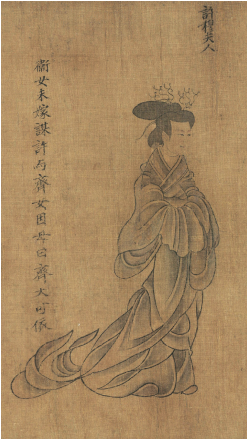 許穆夫人
衛女未嫁謀許与齊女因母曰齊大可依